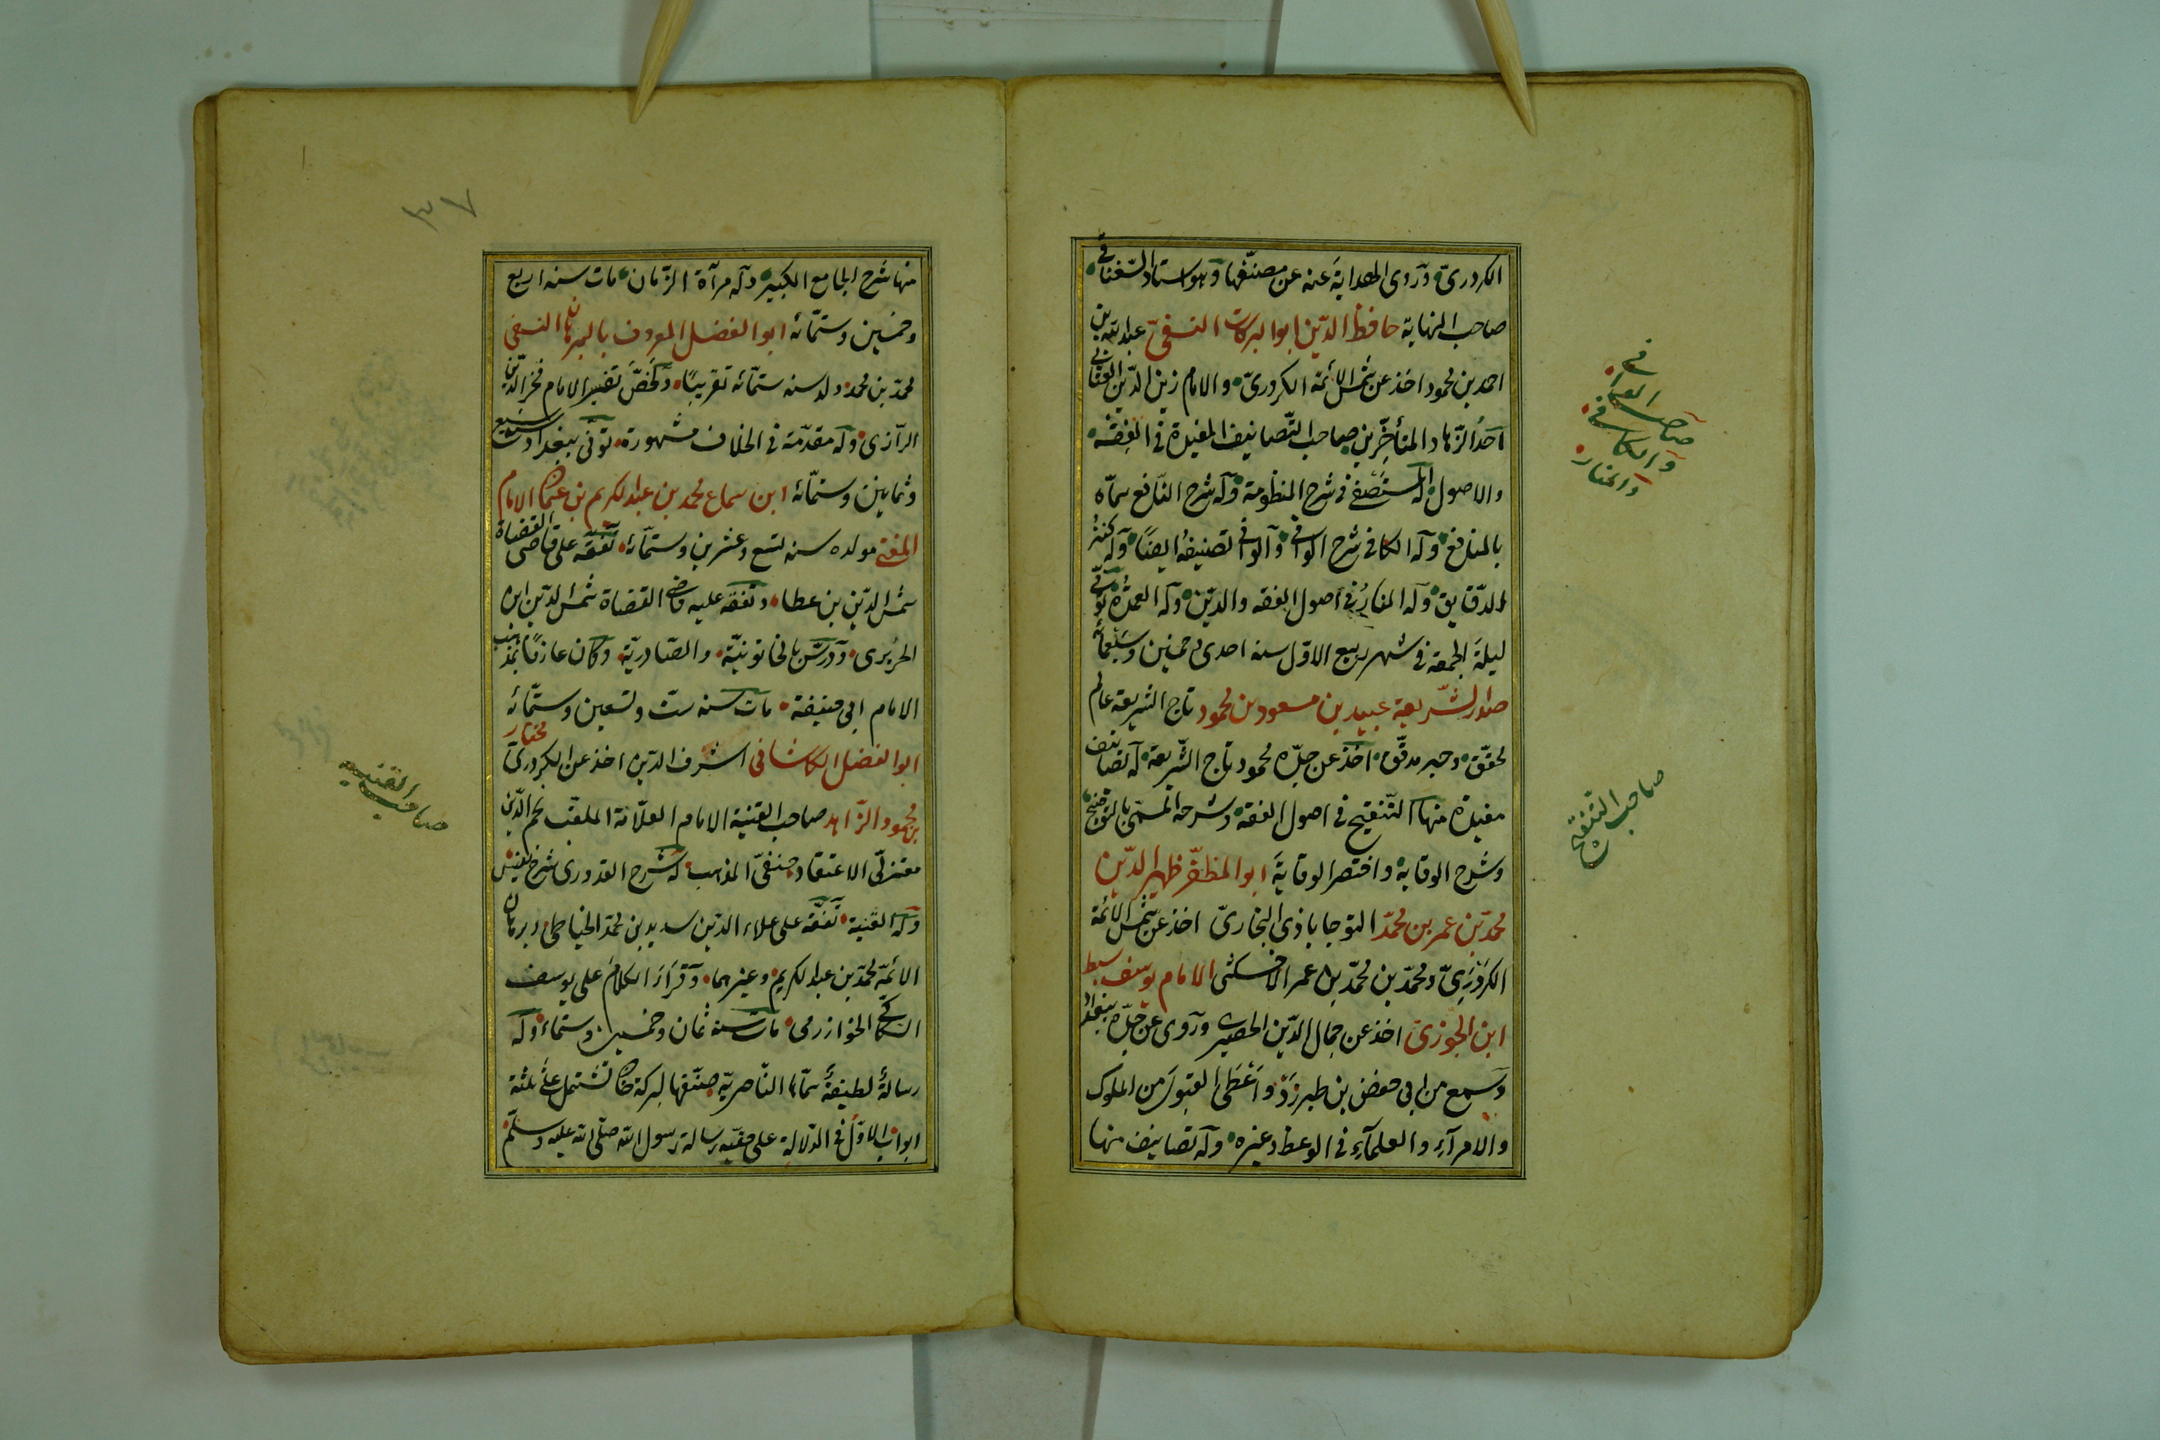 الكردرىّ وروى الهداية عنه عن مصنّفها وهو استاد السّغناقى
صاحب النهاية حافظ الدّين ابوا البركات النسفىّ عبد الله بن
احمد بن محمود اخذ عن شمس الأئمة الكردرىّ والامام زين الدّين العتّابى
احد الزّهاد المتأخّرين صاحب التّصانيف المفيدة فى الفقه
والاصول له المستصفى فى شرح المنظومة وله شرح النّافع سمّاه
بالمنافع وله الكافى شرح الوافى والوافى تصنيفه ايضاً وله كنز
الدّقايق وله المنار فى اصول الفقه والدّين وله العمدة توفّى
ليلة الجمعة فى شهر ربيع الاوّل سنه احدى وخمسين وسبعمائة
صدر الشّريعة عبيد بن مسعود بن محمود تاج الشريعة عالم
محقّق وحبر مدقّق اخذ عن جدّه محمود تاج الشّريعة له تصانيف
مفيدة منها التّنقيح فى اصول الفقه وشرحه المسمّى بالتوضيح
وشرح الوقاية واختصر الوقاية ابوا المظفّر ظهير الدّين
محمّد بن عمر بن محمّد النوجاباذى البخارىّ اخذ عن شمس الائمة
الكردرىّ ومحمّد بن محمّد بن عمر الاخسكثى الامام يوسف سبط
ابن الجوزىّ اخذ عن جمال الدّين الحصيرى وروى عن جدّه ببغداد
وسمع من ابى حفص بن طبرزد واعطى القبول من الملوك
والامرآء والعلمآء فى الوعظ وغيره وله تصانيف منها
صاحب الوافى
والكافى
والمنار
صاحب التنقيح
٣٧
منها شرح الجامع الكبير وله مرآة الزّمان مات سنه اربع
وخمسين وستّمائه ابوا الفضل المعروف بالبرهان النسفى
محمّد بن محمد ولد سنه ستمّائه تقريباً ولخّص تفسير الامام فخر الدّين
الرّازى وله مقدّمة فى الخلاف مشهورة توفى ببغداد سنه سبع
وثمانين وستمّائه ابن سماع محمد بن عبد الكريم بن عثمان الامام
المفتى مولده سنه تسع وعشرين وستمّائة تفقّه على قاضى القضاة
شمس الدّين بن عطا وتفقّه عليه قاضى القضاة شمس الدّين ابن
الحريرى ودرّس بالخاتونيّة والصّادريّة وكان عارفاً بمذهب
الامام ابى حنيفة مات سنه ستّ وتسعين وستّمائه
ابوا الفضل الكاشانى اشرف الدّين اخذ عن الكردرىّ مختار
بن محمود الزّاهد صاحب القنية الامام العلّامة الملقّب نجم الدّين
معتزلىّ الاعتقاد حنفىّ المذهب له شرح القدورى شرح نفيس
وله القنية تفقّه على علاء الدّين سديد بن محمّد الخياطى وبرهان
الائمّة محمّد بن عبد الكريم وغيرهما وقراء الكلام على يوسف
السكاكى الخوارزمى مات سنة ثمان وخمسين وستمائة وله
رسالة لطيفة سمّاها النّاصريّة صنّفها لبركة خان تشتمل على ثلثة
ابواب الاوّل فى الدّلالة على حقّية رسالة رسول الله صلّى الله عليه وسلّم
صاحب القنيه